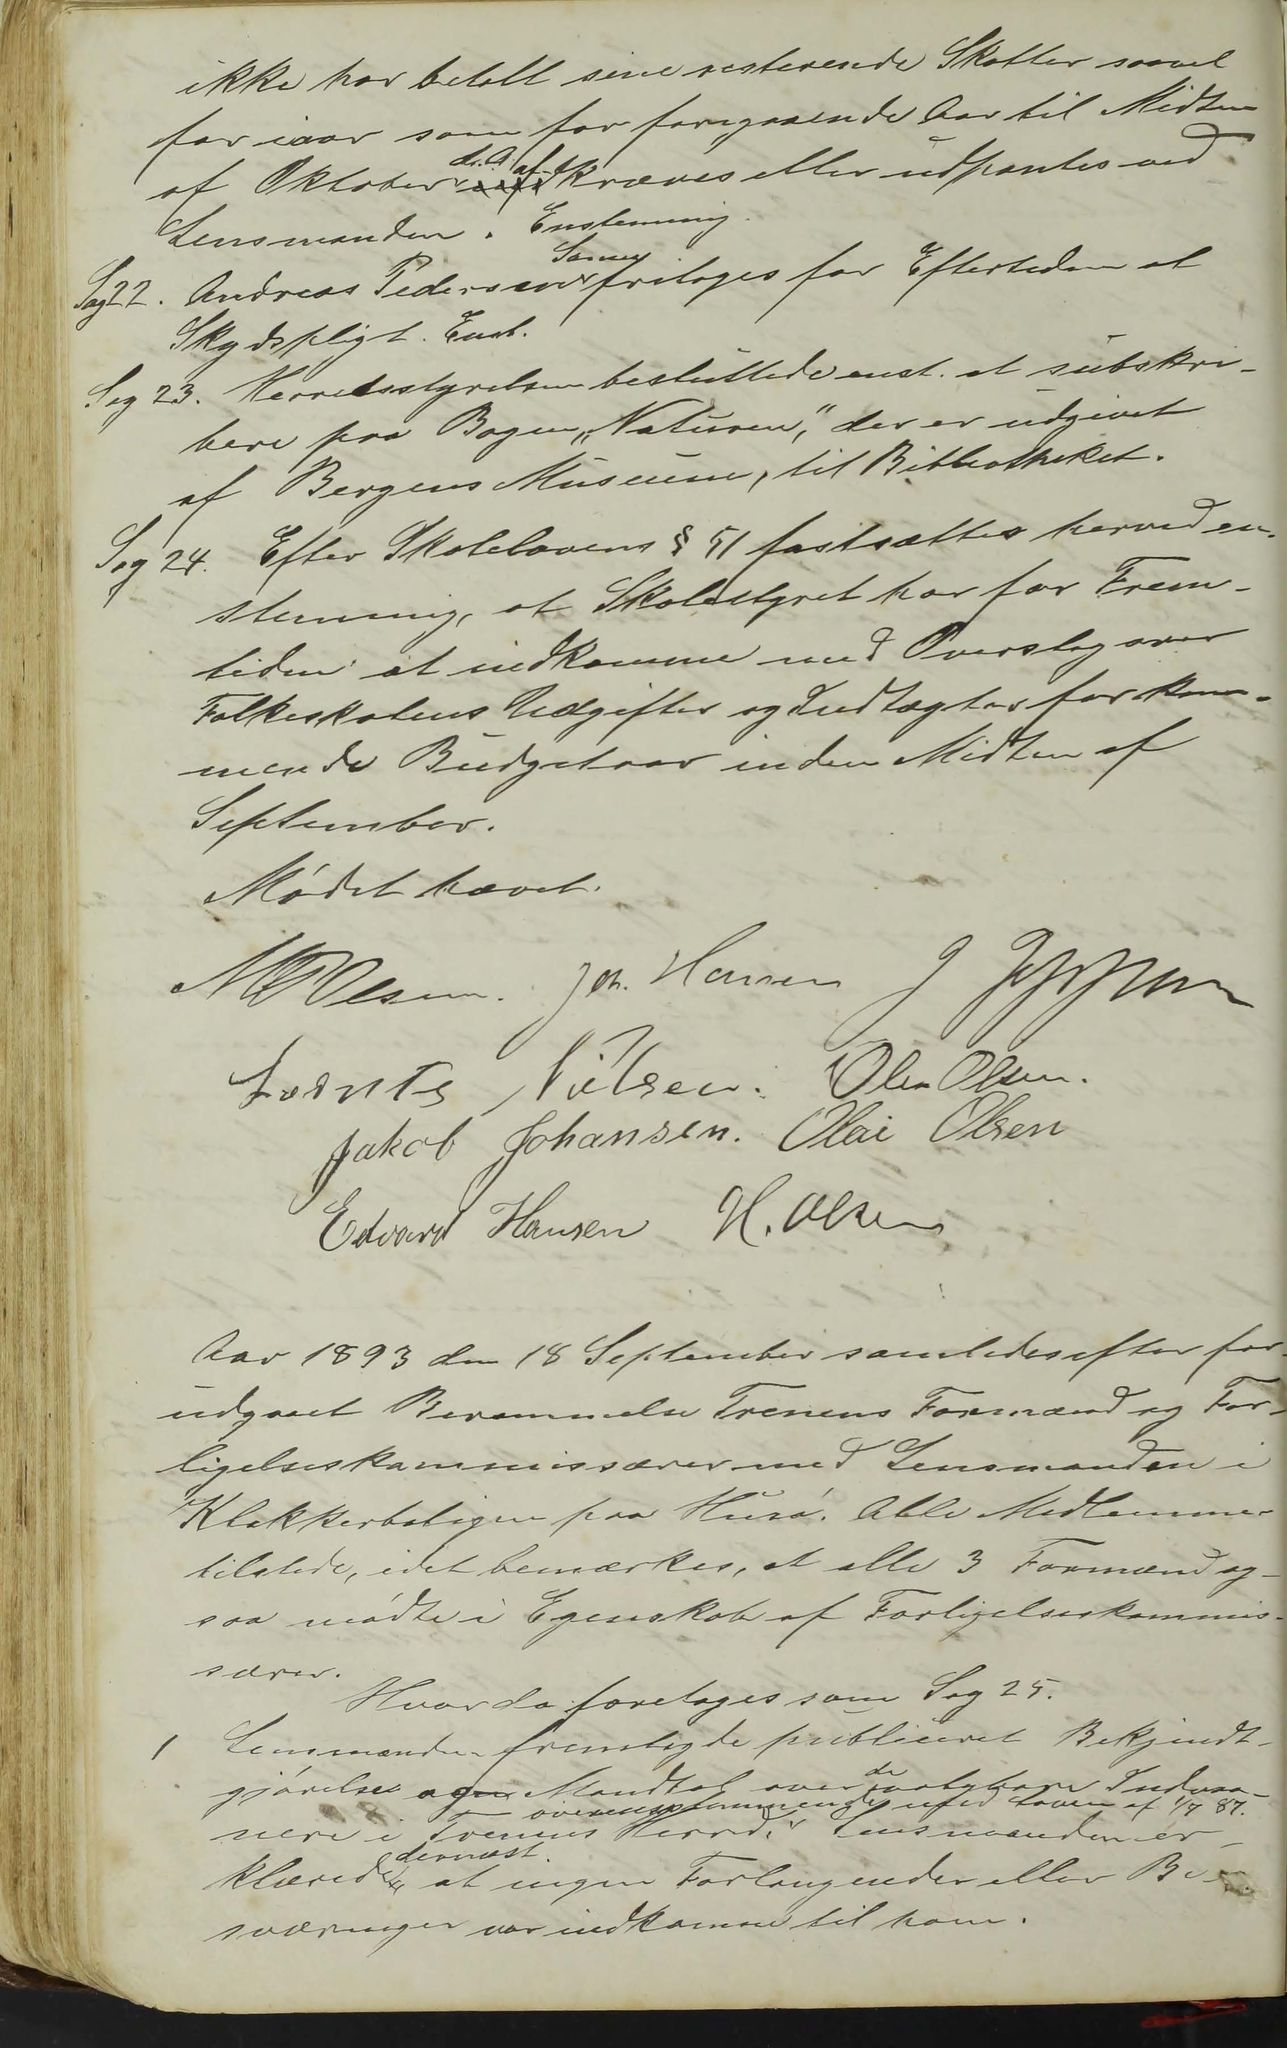 ikke har betalt sine resterende Skatter saavel
for iaar som for foregaaende Aar til Midten
af Oktober d. A. afkræves eller udpantes ved
Lensmanden. Enstemmig.
Sag 22. Andreas Pedersen Sanna fritages for Eftertiden at
Skydspligt. Enst.
Sag 23. Herredsstyrelsen besluttede enst. at subskri-
bere paa Bogen „Naturen“, der er udgivet
af Bergens Museum, til Bibliotheket.
Sag 24. Efter Skolelovens § 51 fastsættes herved en-
stemmig, at Skolestyret har for Frem-
tiden at indkomme med Overslag over
Folkeskolens Udgifter og Indtægter for kom-
mende Budgetaar inden Midten af
September.
Mødet hævet.
Olsen. Joh. Hansen J
Lornts Nilsen. Ole Olsen.
Jakob Johansen. Olai Olsen
Edvard Hansen H. Olsen
Aar 1893 den 18 September samledes efter for-
udgaaet Berammelse Trænens Formænd og For-
ligelseskommissærer med Lensmanden i
Klokkerboligen paa Husø. Alle Medlemmer
tilstede, idet bemærkes, at alle 3 Formænd og-
saa mødte i Egenskab af Forligelseskommis-
særer.
Hvor da foretages som Sag 25.
1 Lensmanden fremlagde publiceret Bekjendt-
gjørelse og Mandtal over de Indvaa-
nere i Trænens Herred overensstemmende med Loven af 1/7 87. Lensmanden er-
klærede dernæst, at ingen Forlangender eller Be-
sværinger var indkomne til ham.